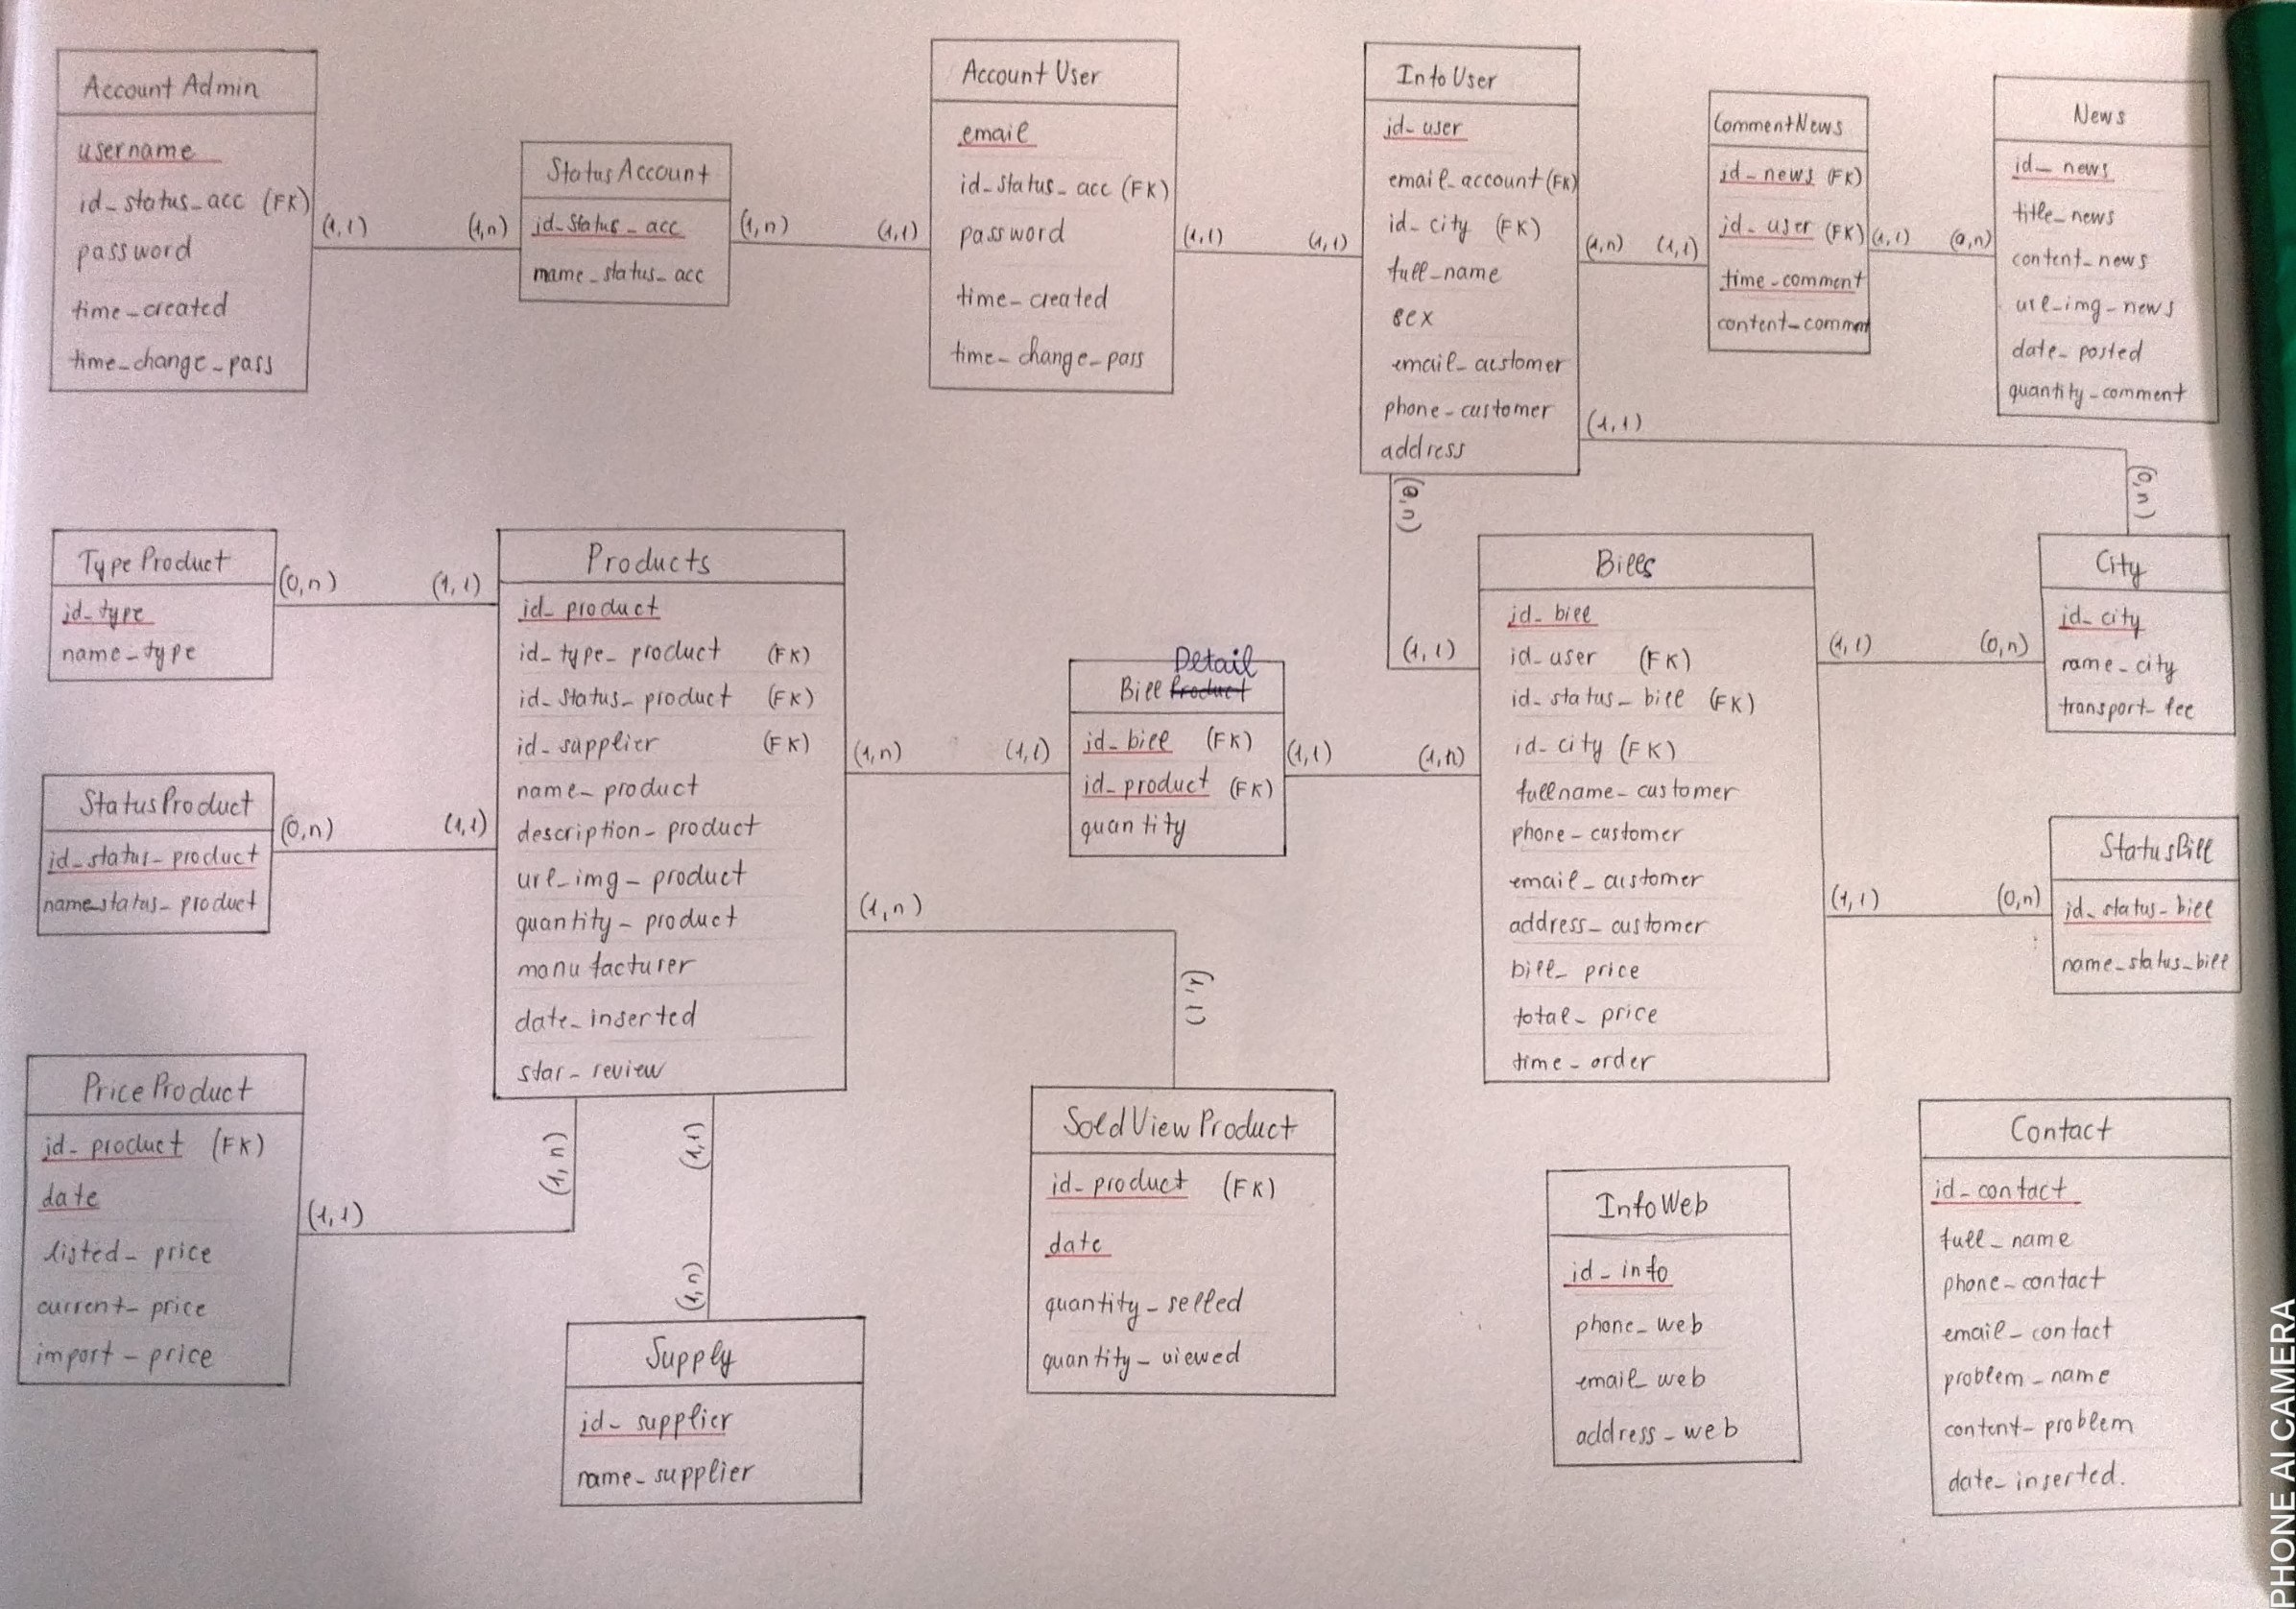 Account Admin
username
id_status_acc (FK)
password
time_created
time_change_pass
(1,1)
(1,n)
Status Account
id_status_acc
name_status_acc
(1,n)
(1,1)
Account User
email
id_status_acc (FK)
password
time_created
time_change_pass
(1,1)
(1,1)
Info User
id_user
email_account (FK)
id_city (FK)
full_name
sex
email_customer
phone_customer
address
(1,n)
(1,1)
CommentNews
id_news (FK)
id_user (FK)
time_comment
content_comment
(1,1)
(0,n)
News
id_news
title_news
content_news
url_img_news
date_posted
quantity_comment
(1,1)
(0,n)
(0,n)
Type Product
id_type
name_type
(0,n)
(1,1)
Status Product
id_status_product
name_status_product
(0,n)
(1,1)
Products
id_product
id_type_product (FK)
id_status_product (FK)
id_supplier (FK)
name_product
description_product
url_img_product
quantity_product
manufacturer
date_inserted
star_review
(1,n)
(1,1)
Detail
Bill Product
id_bill (FK)
id_product (FK)
quantity
(1,1)
(1,n)
(1,1)
Bills
id_bill
id_user (FK)
id_status_bill (FK)
id_city (FK)
fullname_customer
phone_customer
email_customer
address_customer
bill_price
total_price
time_order
(1,1)
(0,n)
City
id_city
name_city
transport_fee
(1,1)
(0,n)
StatusBill
id_status_bill
name_status_bill
(1,n)
(1,1)
Price Product
id_product (FK)
date
listed_price
current_price
import_price
(1,1)
(1,n)
(1,1)
(1,n)
Supply
id_supplier
name_supplier
Sold View Product
id_product (FK)
date
quantity_selled
quantity_viewed
Info Web
id_info
phone_web
email_web
address_web
Contact
id_contact
full_name
phone_contact
email_contact
problem_name
content_problem
date_inserted.
PHONE AI CAMERA